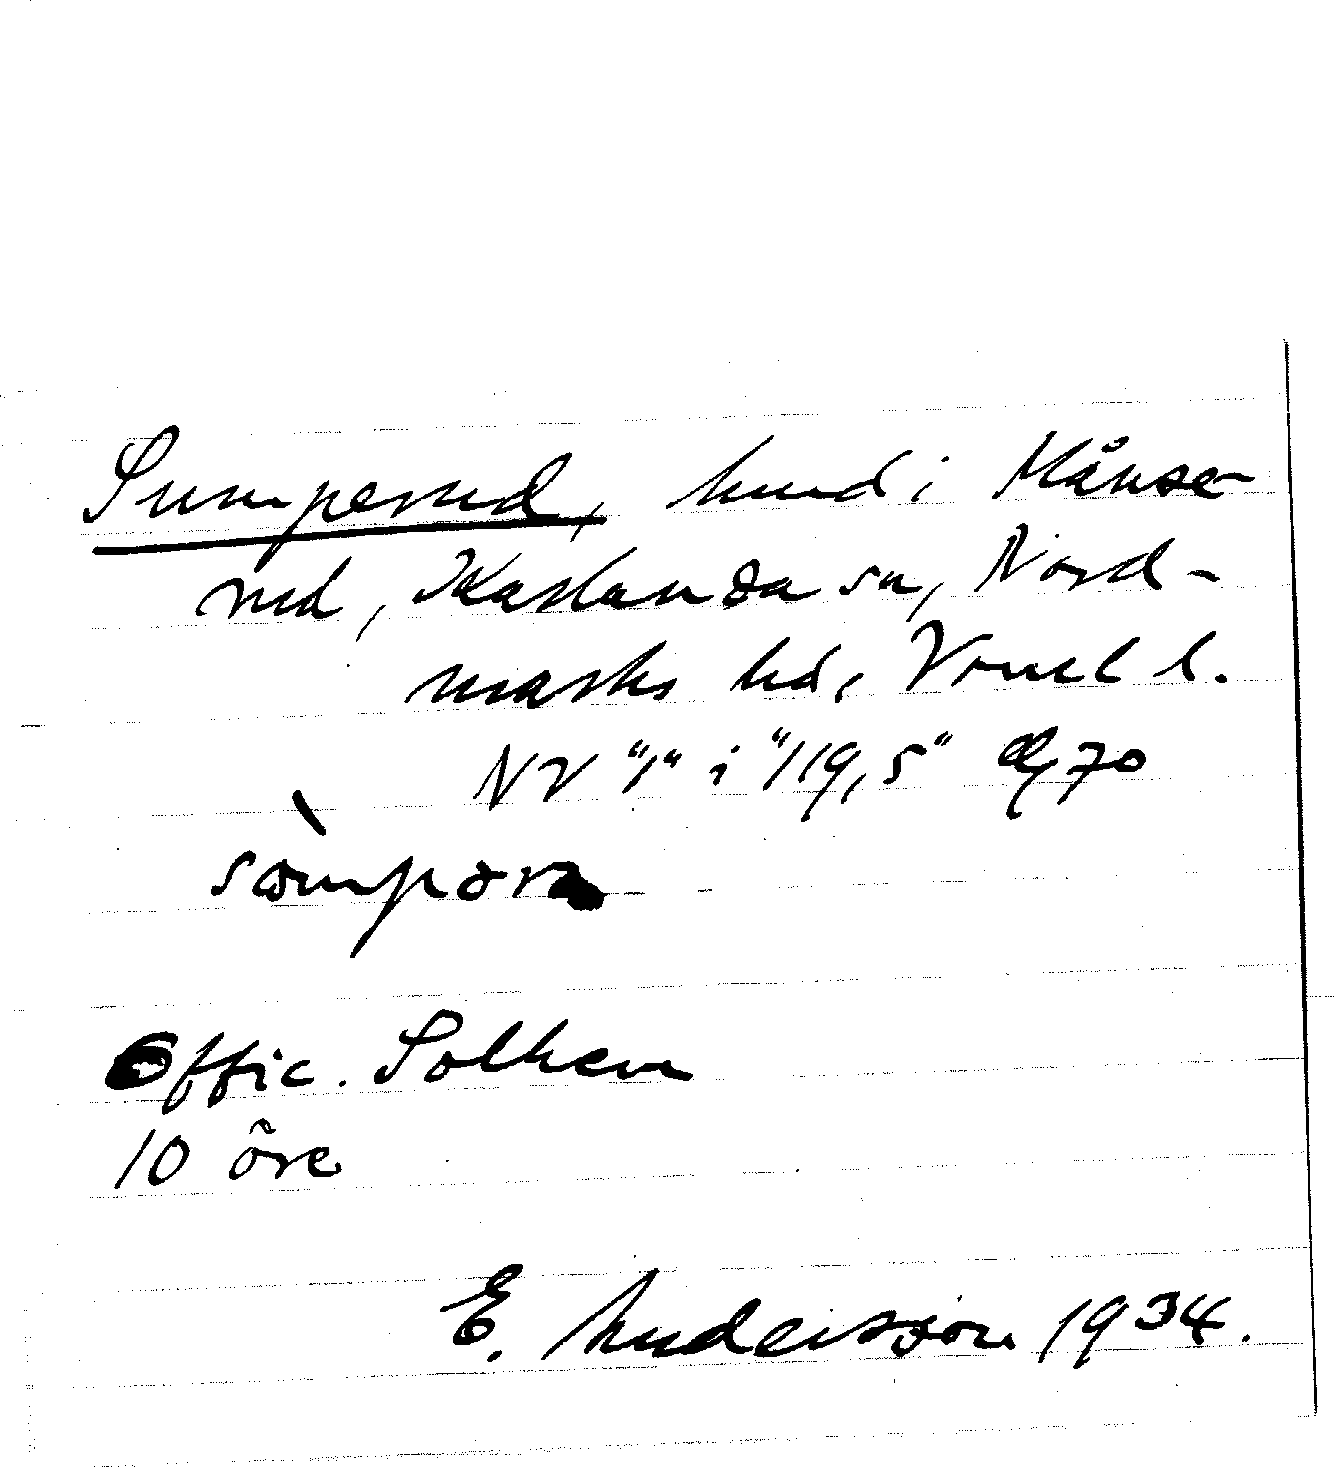 Sumperud, hmd i Månse-
rud, Karlanda sn, Nord-
marks hd, Vrml l.
NV "1" i "119,5" Æ 70
sòmpər
Offic. Solhem
10 öre
E. Andersson 1934.